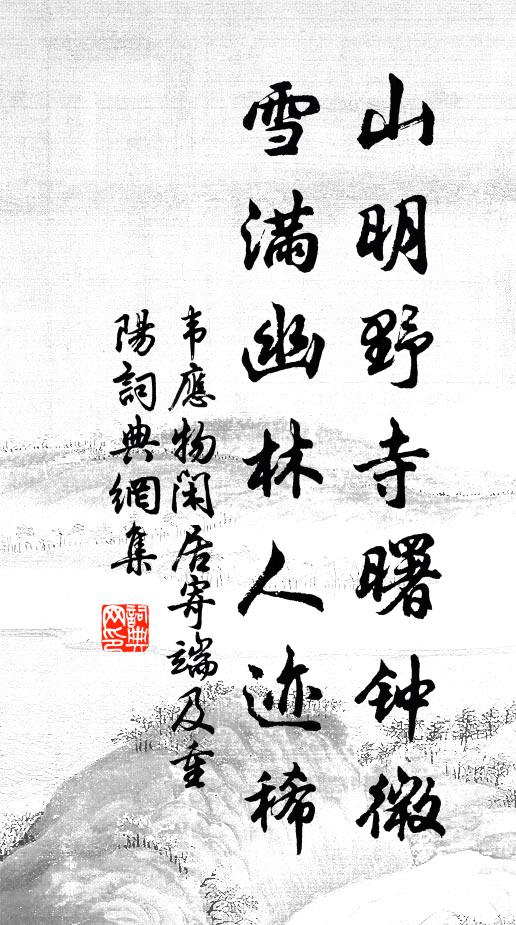 山明野寺曙钟微
雪满幽林人迹稀
韦應物闲居寄端及重
陽詞典網集
詞典
网印